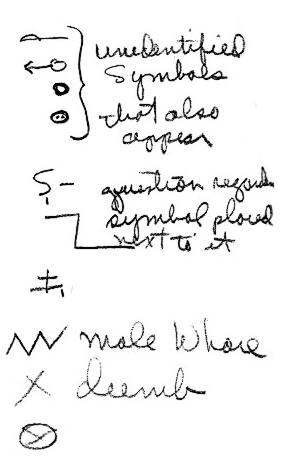 unidentified
Symbols
that also
appear
question regards
symbol placed
next to it
male Whore